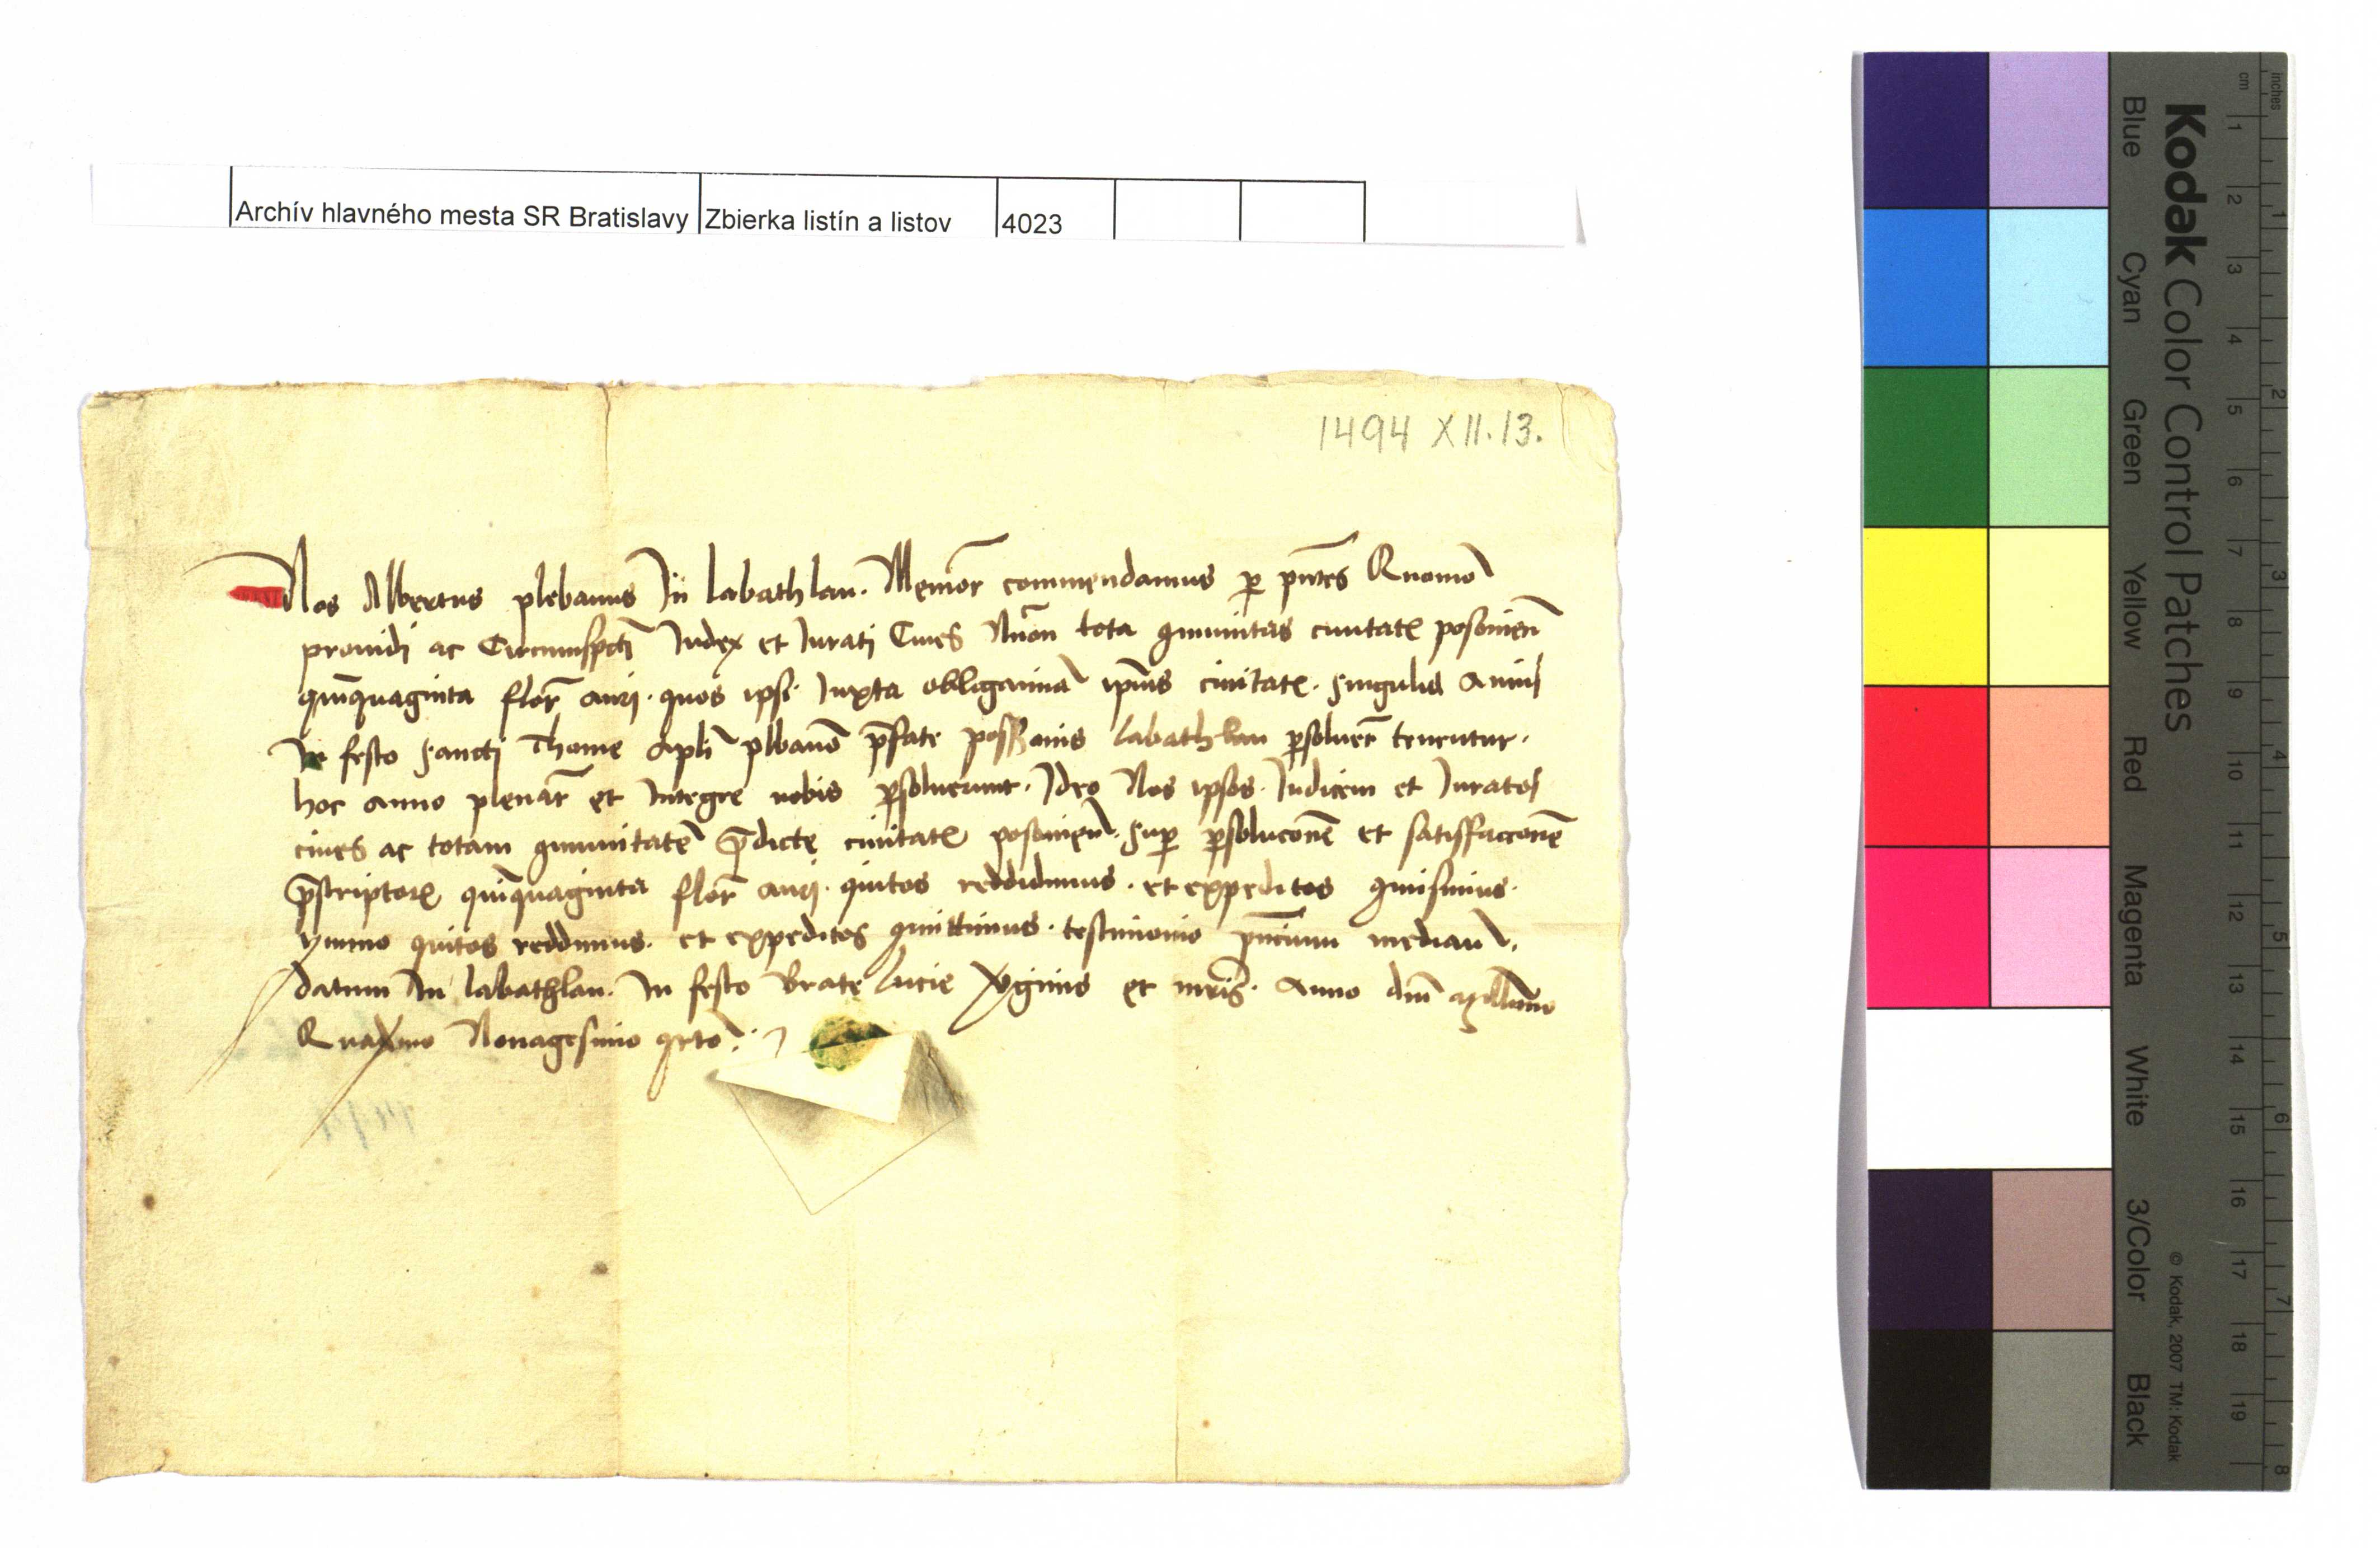 Archív hlavného mesta SR Bratislavy Zbierka listín a listov 4023
1494 XII. 13.
Nos Albertus plebanus In labathlan. Memor̄ commendamus p̱ pn̄tes Quomo
prouidi ac Circumspecti Iudex et Iurati Ciues Nn̄on tota ꝯmunitas ciuitatꝭ posonien̄
quīquaginta flor̄ auri. quos ipsi Iuxta obligaminā ip̄ius ciuitatꝭ. singulis Annis
In festo sancti Thome apl̄i plbano p̄fate poss̄onis labathlan p̱soluer̄ tenentur.
hoc anno plenar̄ et Integre nobis p̱soluerunt. Ideo Nos ipsos. Iudicem et Iuratos
ciues ac totam ꝯmunitatē p̄dicte ciuitatꝭ posonien̄. sup̱ p̱soluc̄onē et satisfacc̄onē
p̄scriptorꝝ quīquaginta flor̄ auri. quitos reddidimus. et expeditos ꝯmisimus.
ymmo quitos reddimus. et expeditos ꝯmittimus. testimonio pn̄cium median̄.
datum In labathlan. In festo Beate lucie v̄ginis et mr̄is. Anno dn̄i mill̄imo
Quadrmo Nonagesimo qrto.
Kodak Color Control Patches
Blue Cyan Green Yellow Red Magenta White 3/Color Black
© Kodak, 2007 TM: Kodak
cm 1 2 3 4 5 6 7 8 9 10 11 12 13 14 15 16 17 18 19
inches 1 2 3 4 5 6 7 8